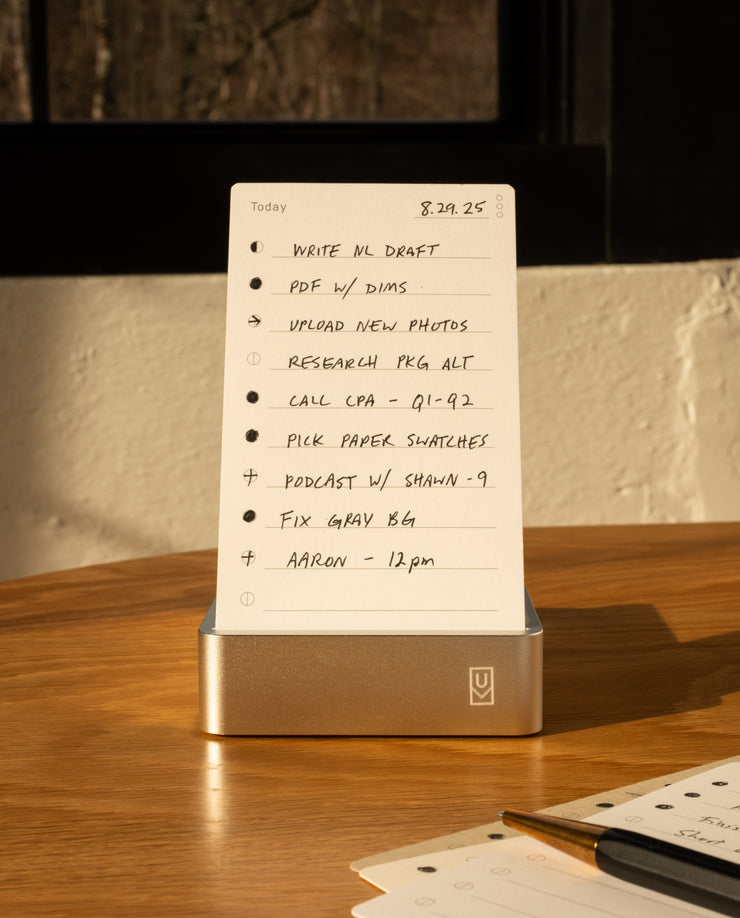 Today 8.29.25
WRITE NL DRAFT
PDF W/ DIMS
UPLOAD NEW PHOTOS
RESEARCH PKG ALT
CALL CPA - Q1-92
PICK PAPER SWATCHES
PODCAST W/ SHAWN - 9
FIX GRAY BG
AARON - 12pm
U